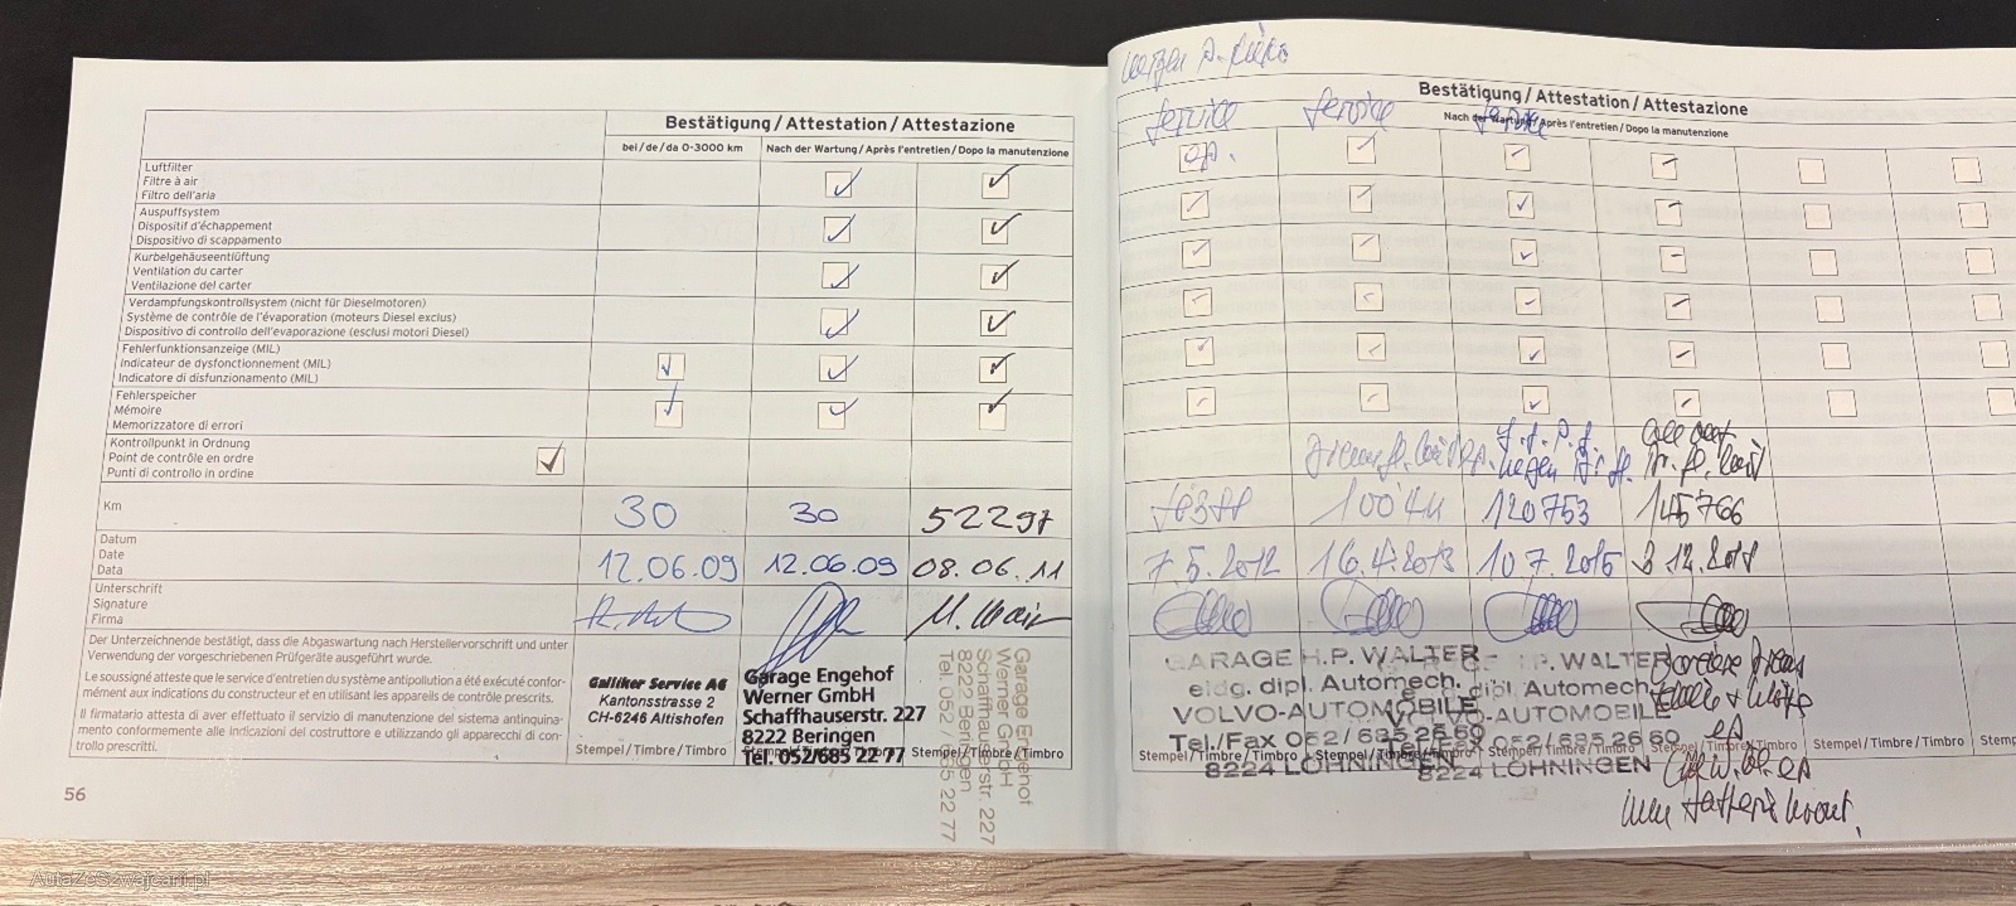 Bestätigung / Attestation / Attestazione
bei / de / da 0-3000 km
Nach der Wartung / Après l'entretien / Dopo la manutenzione
Luftfilter
Filtre à air
Filtro dell'aria
Auspuffsystem
Dispositif d'échappement
Dispositivo di scappamento
Kurbelgehäuseentlüftung
Ventilation du carter
Ventilazione del carter
Verdampfungskontrollsystem (nicht für Dieselmotoren)
Système de contrôle de l'évaporation (moteurs Diesel exclus)
Dispositivo di controllo dell'evaporazione (esclusi motori Diesel)
Fehlerfunktionsanzeige (MIL)
Indicateur de dysfonctionnement (MIL)
Indicatore di disfunzionamento (MIL)
Fehlerspeicher
Mémoire
Memorizzatore di errori
Kontrollpunkt in Ordnung
Point de contrôle en ordre
Punti di controllo in ordine
Km
30
30
52297
Datum
Date
Data
12.06.09
12.06.09
08.06.11
Unterschrift
Signature
Firma
Der Unterzeichnende bestätigt, dass die Abgaswartung nach Herstellervorschrift und unter
Verwendung der vorgeschriebenen Prüfgeräte ausgeführt wurde.
Le soussigné atteste que le service d'entretien du système antipollution a été exécuté confor-
mément aux indications du constructeur et en utilisant les appareils de contrôle prescrits.
Il firmatario attesta di aver effettuato il servizio di manutenzione del sistema antinquina-
mento conformemente alle indicazioni del costruttore e utilizzando gli apparecchi di con-
trollo prescritti.
Galliker Service AG
Kantonsstrasse 2
CH-6246 Altishofen
Stempel / Timbre / Timbro
Garage Engehof
Werner GmbH
Schaffhauserstr. 227
8222 Beringen
Tel. 052/685 22 77
Stempel / Timbre / Timbro
Garage Engehof
Werner GmbH
Schaffhauserstr. 227
8222 Beringen
Tel. 052 / 685 22 77
Stempel / Timbre / Timbro
56
Service
Service
Service
Bestätigung / Attestation / Attestazione
Nach der Wartung / Après l'entretien / Dopo la manutenzione
120753
145766
7.5.2012
16.4.2013
10 7. 2015
3 12.2018
GARAGE H.P. WALTER
eidg. dipl. Automech.
VOLVO-AUTOMOBILE
Tel./Fax 052/685 26 60
8224 LÖHNINGEN
P. WALTER
dipl. Automech.
VOLVO-AUTOMOBILE
052/685 26 60
8224 LÖHNINGEN
Stempel / Timbre / Timbro
Stempel / Timbre / Timbro
Stempel / Timbre / Timbro
Stempel / Timbre / Timbro
Stempel / Timbre / Timbro
AutaZeSzwajcarii.pl